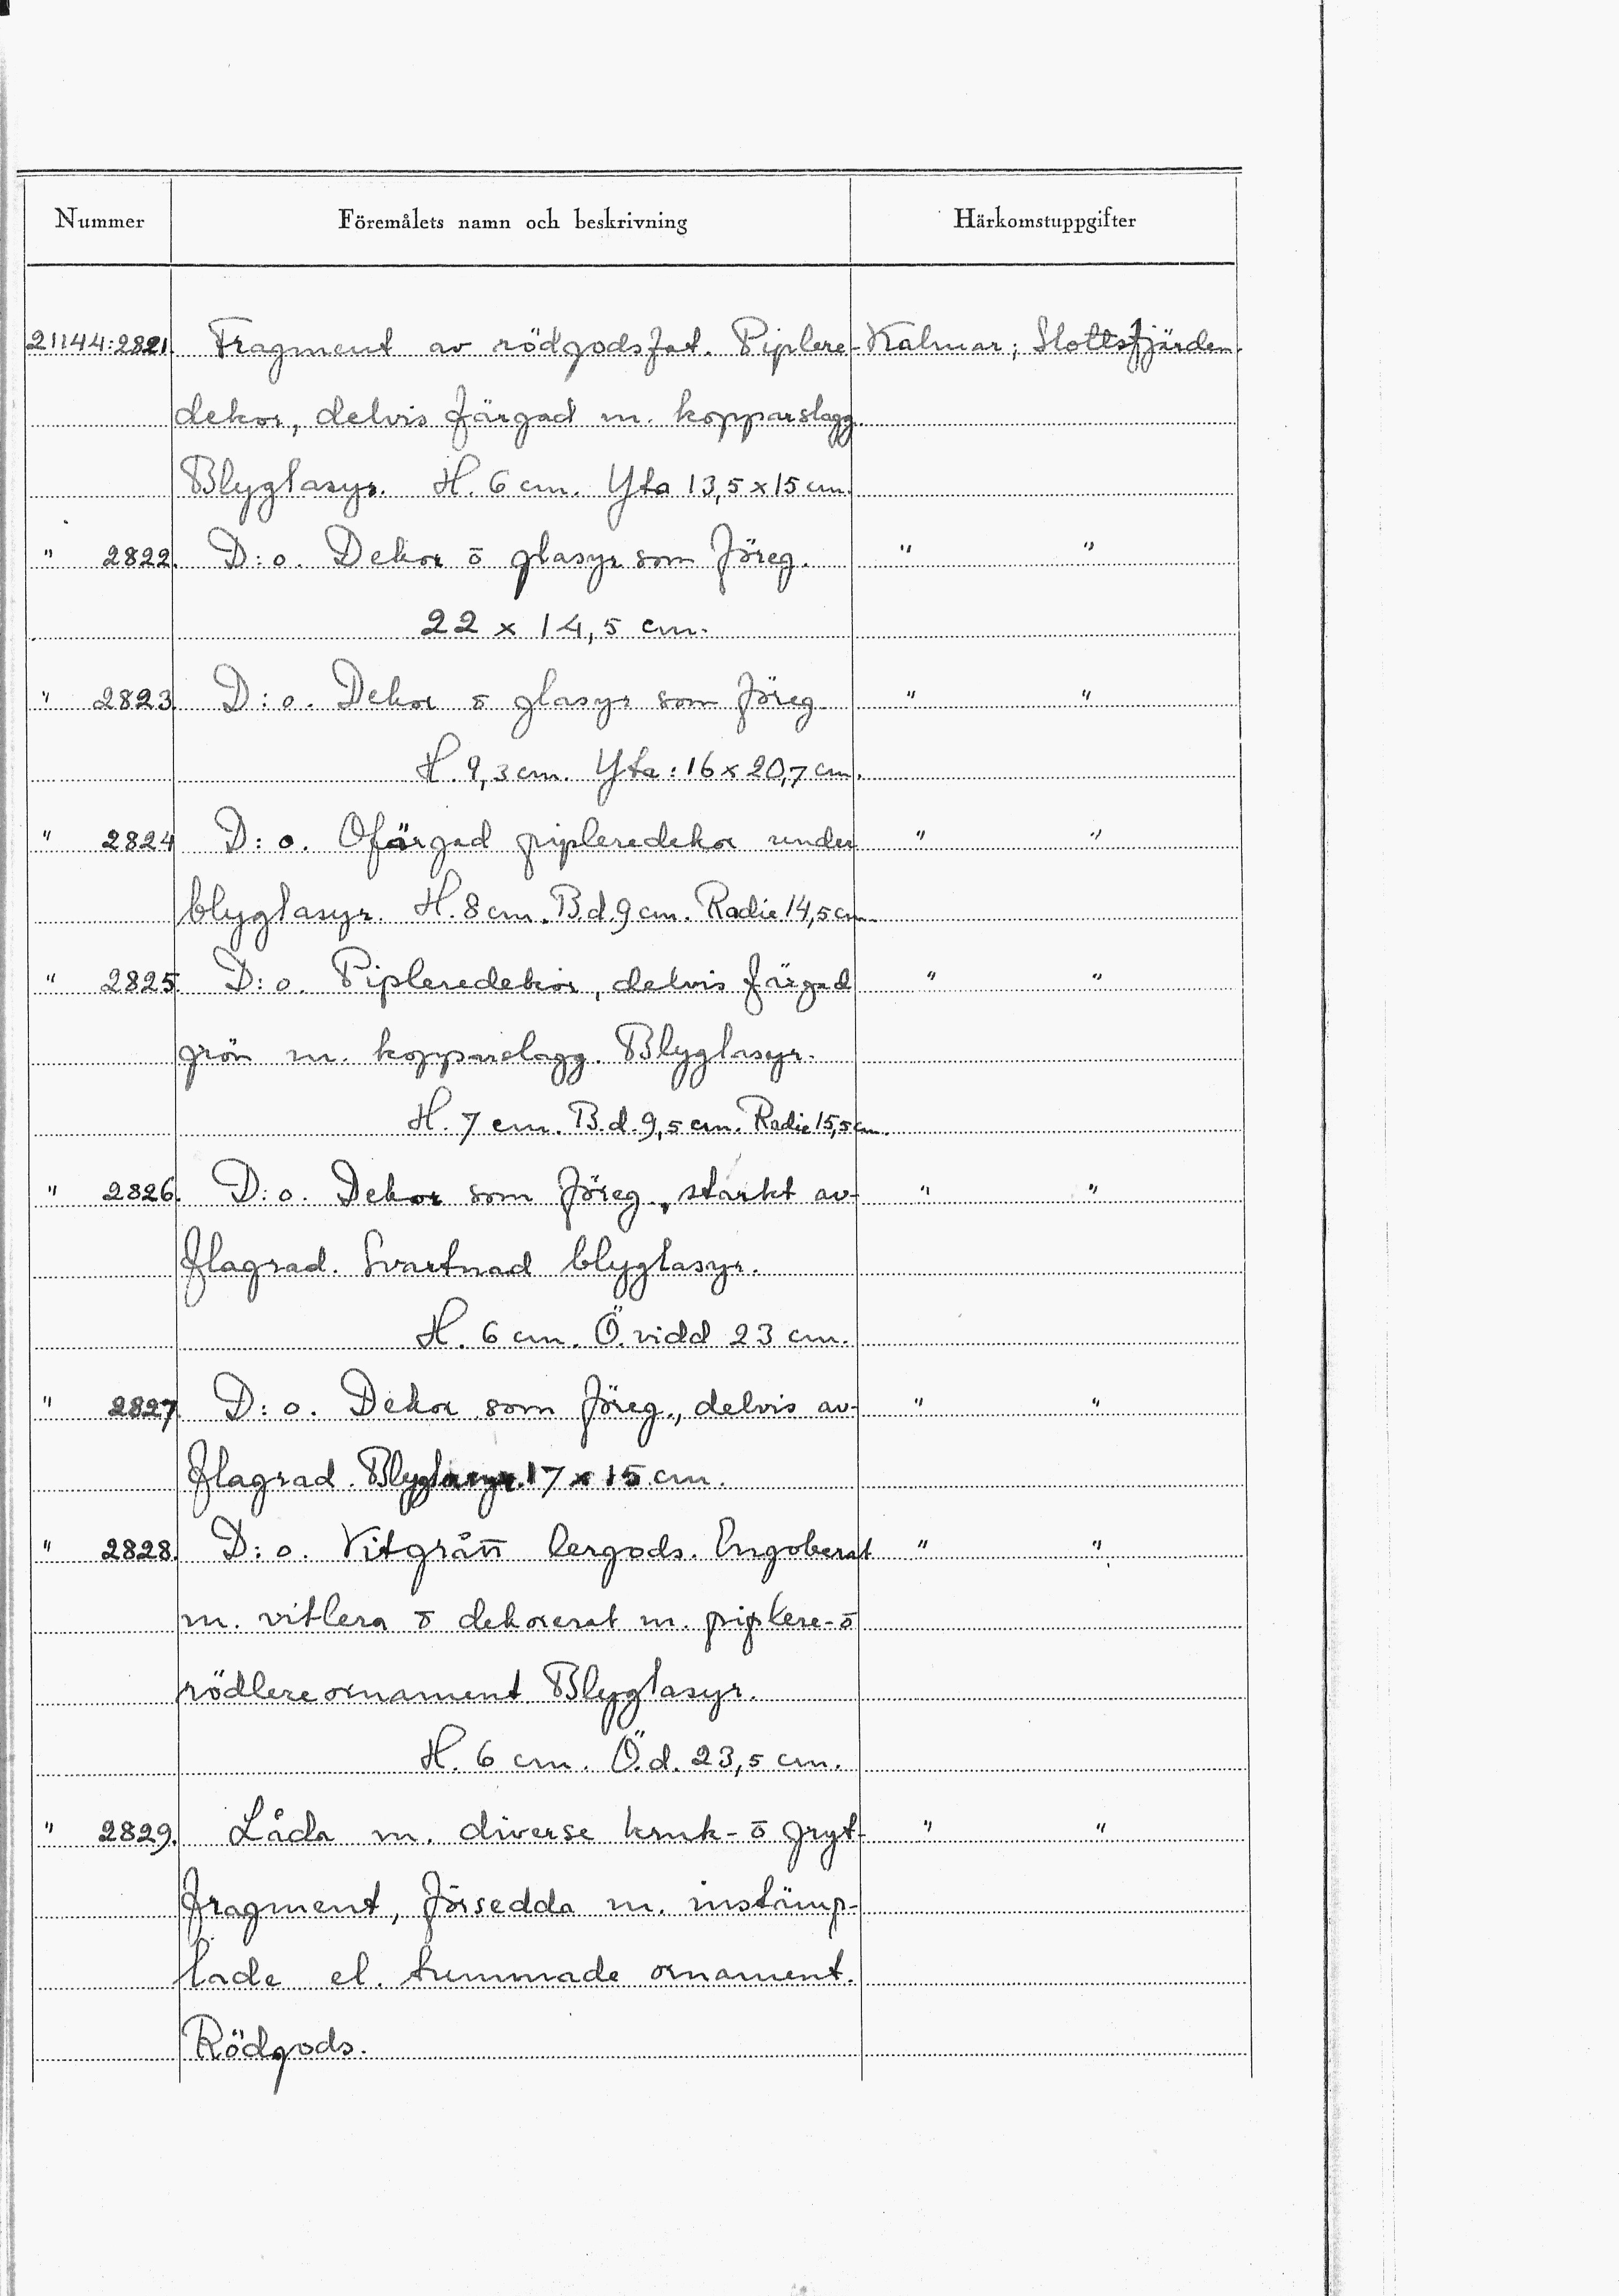 Nummer Föremålets namn och beskrivning Härkomstuppgifter
21144:2821. Fragment av rödgodsfat. Piplere- Kalmar; Slottsfjärden.
dekor, delvis färgad m. kopparslagg.
Blyglasyr. H. 6 cm. Yta 13,5 x 15 cm.
" 2822. D:o. Dekor ō glasyr som föreg. " "
22 x 14,5 cm.
" 2823. D:o. Dekor ō glasyr som föreg. " "
H. 9,3 cm. Yta: 16 x 20,7 cm.
" 2824 D:o. Ofärgad pipleredekor under " "
blyglasyr. H. 8 cm. B.d. 9 cm. Radie 14,5 cm.
" 2825. D:o. Pipleredekor, delvis färgad " "
grön m. kopparslagg. Blyglasyr.
H. 7 cm. B.d. 9,5 cm. Radie 15,5 cm.
" 2826. D:o. Dekor som föreg., starkt av- " "
flagrad. Svartnad blyglasyr.
H. 6 cm. Ö.vidd 23 cm.
" 2827 D:o. Dekor som föreg., delvis av- " "
flagrad. Blyglasyr. 17 x 15 cm.
" 2828. D:o. Vitgrått lergods. Engoberat " "
m. vitlera ō dekorerat m. piplere-ō
rödlereornament. Blyglasyr.
H. 6 cm. Ö.d. 23,5 cm.
" 2829. Låda m. diverse kruk-ō gryt- " "
fragment, försedda m. instämp-
lade el. tummade ornament.
Rödgods.